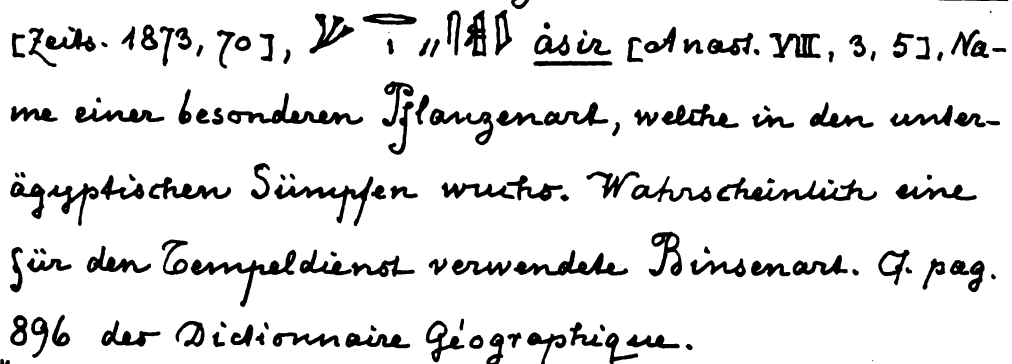 [Zeits. 1873, 70], ȧsir [Anast. VIII, 3, 5], Na-
me einer besonderen Pflanzenart, welche in den unter-
ägyptischen Sümpfen wuchs. Wahrscheinlich eine
für den Tempeldienst verwendete Binsenart. Cf. pag.
896 des Dictionnaire Géographique.